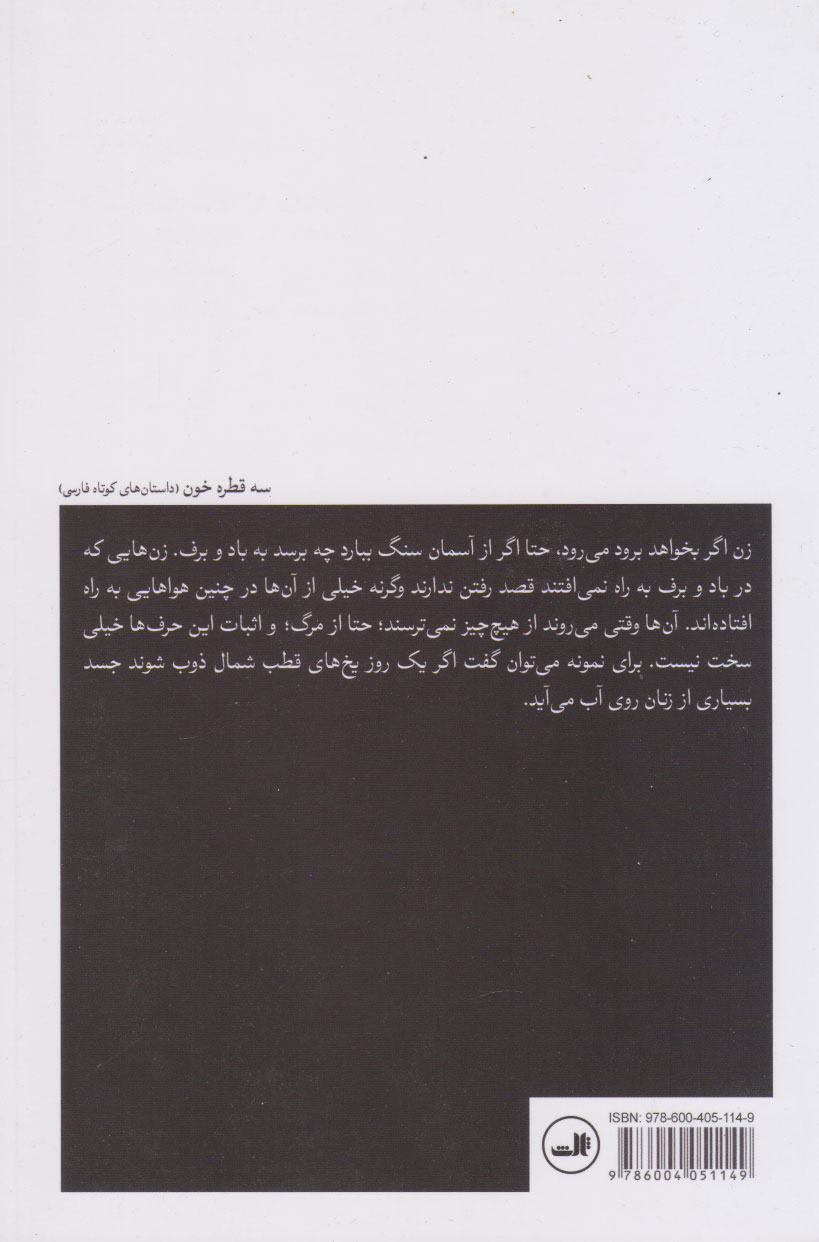 سه قطره خون (داستان‌های کوتاه فارسی)
زن اگر بخواهد برود می‌رود، حتا اگر از آسمان سنگ ببارد چه برسد به باد و برف. زن‌هایی که
در باد و برف به راه نمی‌افتند قصد رفتن ندارند وگرنه خیلی از آن‌ها در چنین هواهایی به راه
افتاده‌اند. آن‌ها وقتی می‌روند از هیچ‌چیز نمی‌ترسند؛ حتا از مرگ؛ و اثبات این حرف‌ها خیلی
سخت نیست. برای نمونه می‌توان گفت اگر یک روز یخ‌های قطب شمال ذوب شوند جسد
بسیاری از زنان روی آب می‌آید.
ISBN: 978-600-405-114-9
ثالث
9 786004 051149